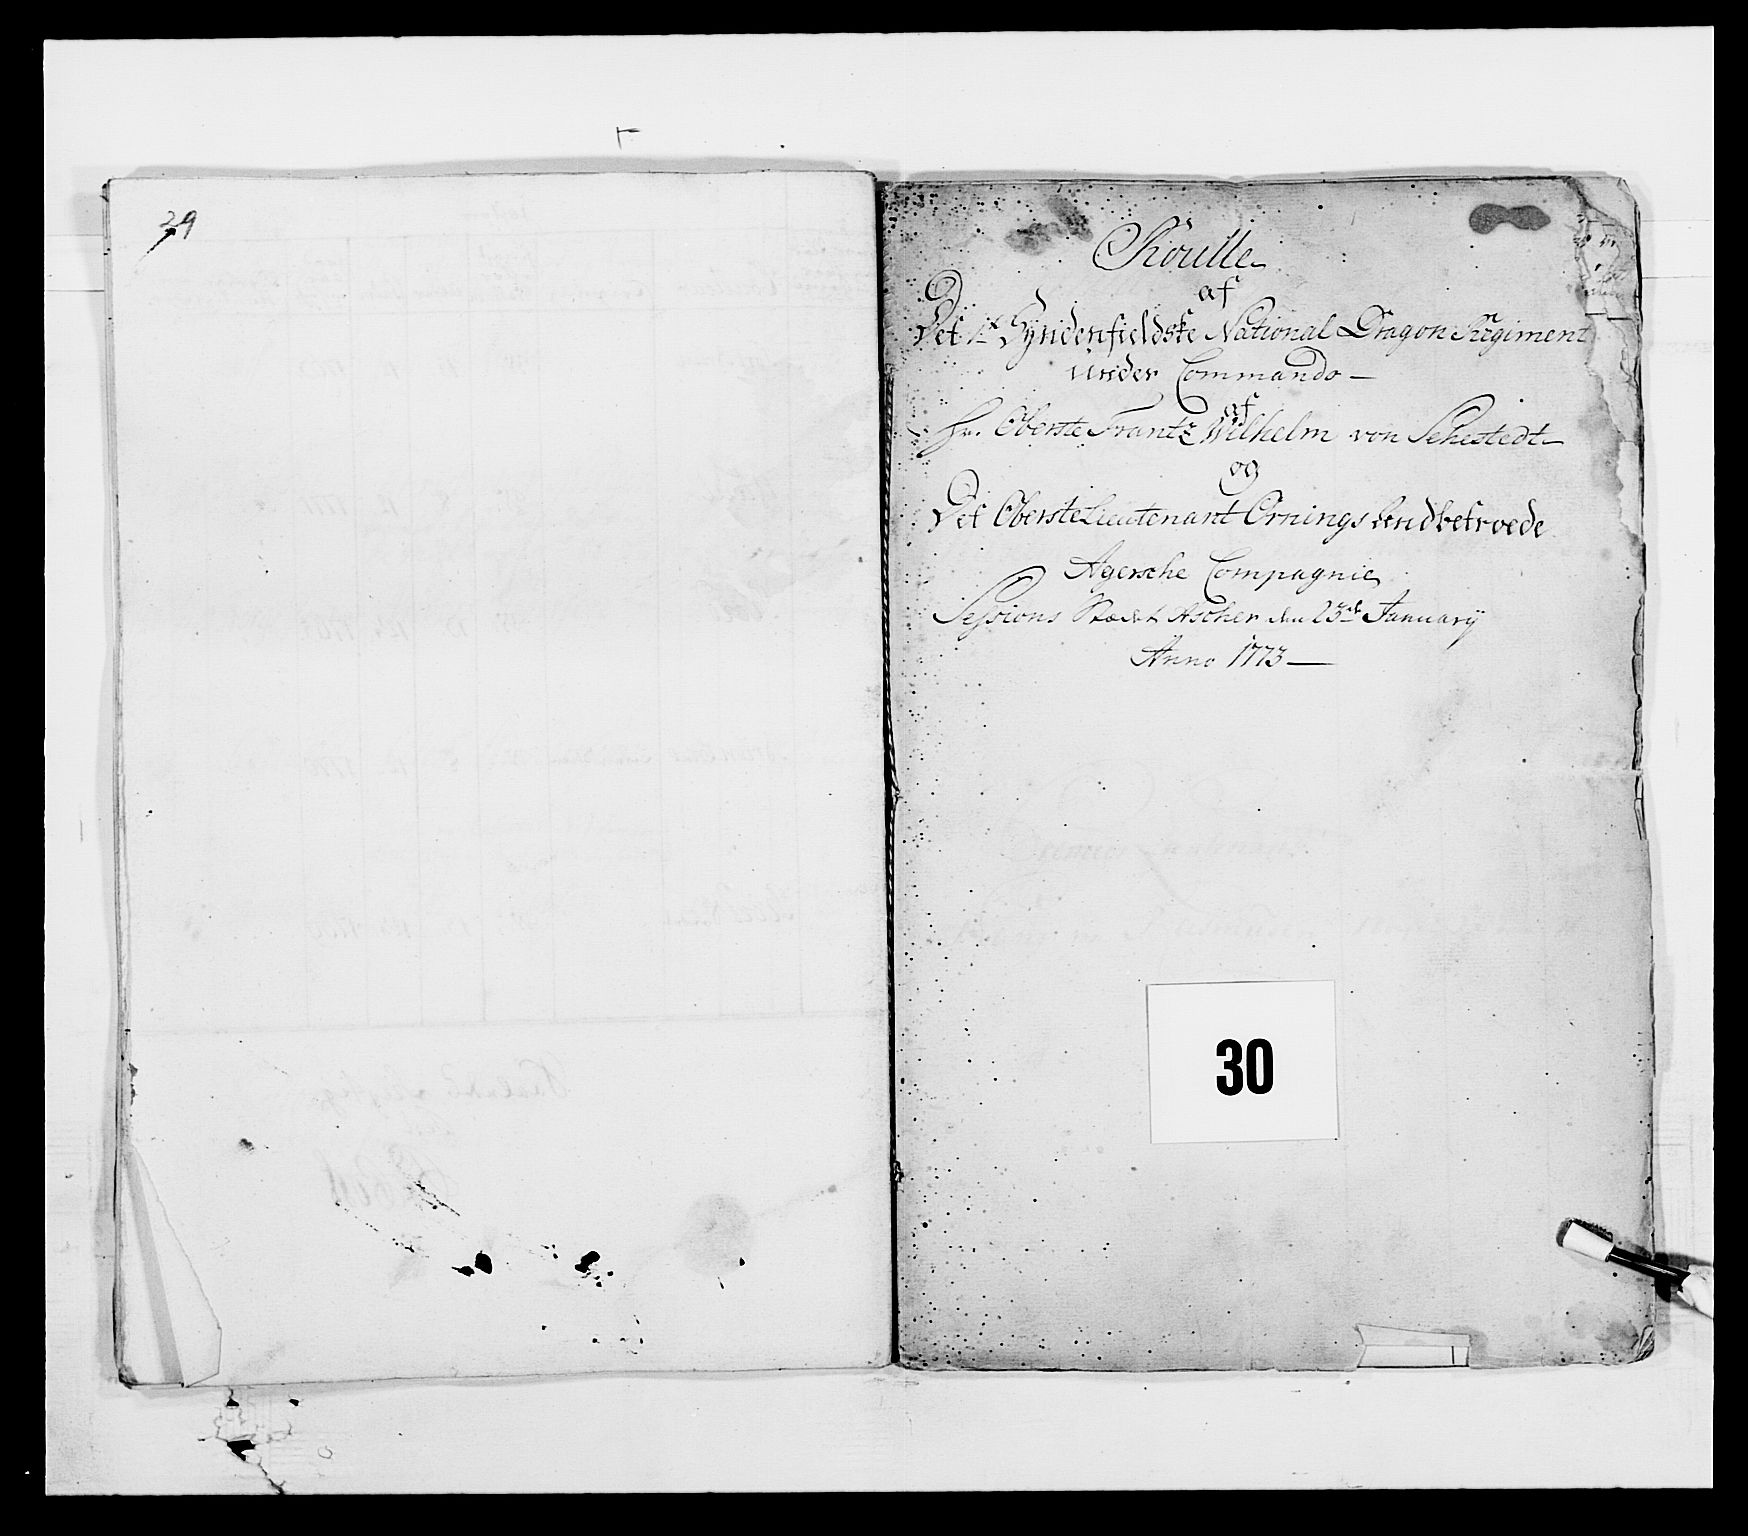 29
Roulle
af
Det 1t Syndenfieldske National Dragon Regiment
under Commando
af
Hr. Oberste Frantz Wilhelm von Sehestedt
og
Det ObersteLieutenant Ornings
Agersche Compagnie
Sessions Stædet Ascher den 23de January
Anno 1773
30